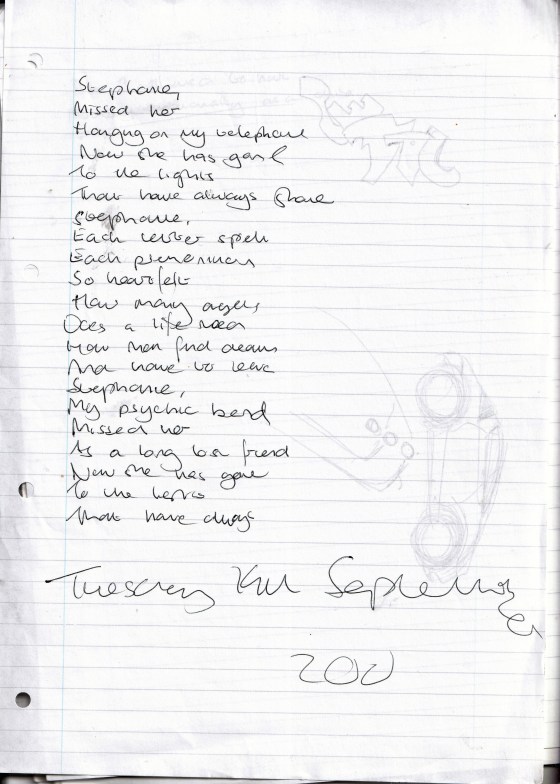 Stephanie,
Missed her
Hanging on my telephone
Now she has gone
To the lights
That have always shone
Stephanie,
Each letter spelt
Each
So heartfelt
How many angels
Does a life need
How men find dreams
And have to leave
Stephanie,
My psychic bend
Missed her
As a long lost friend
Now she has gone
To the
That have always
Tuesday September